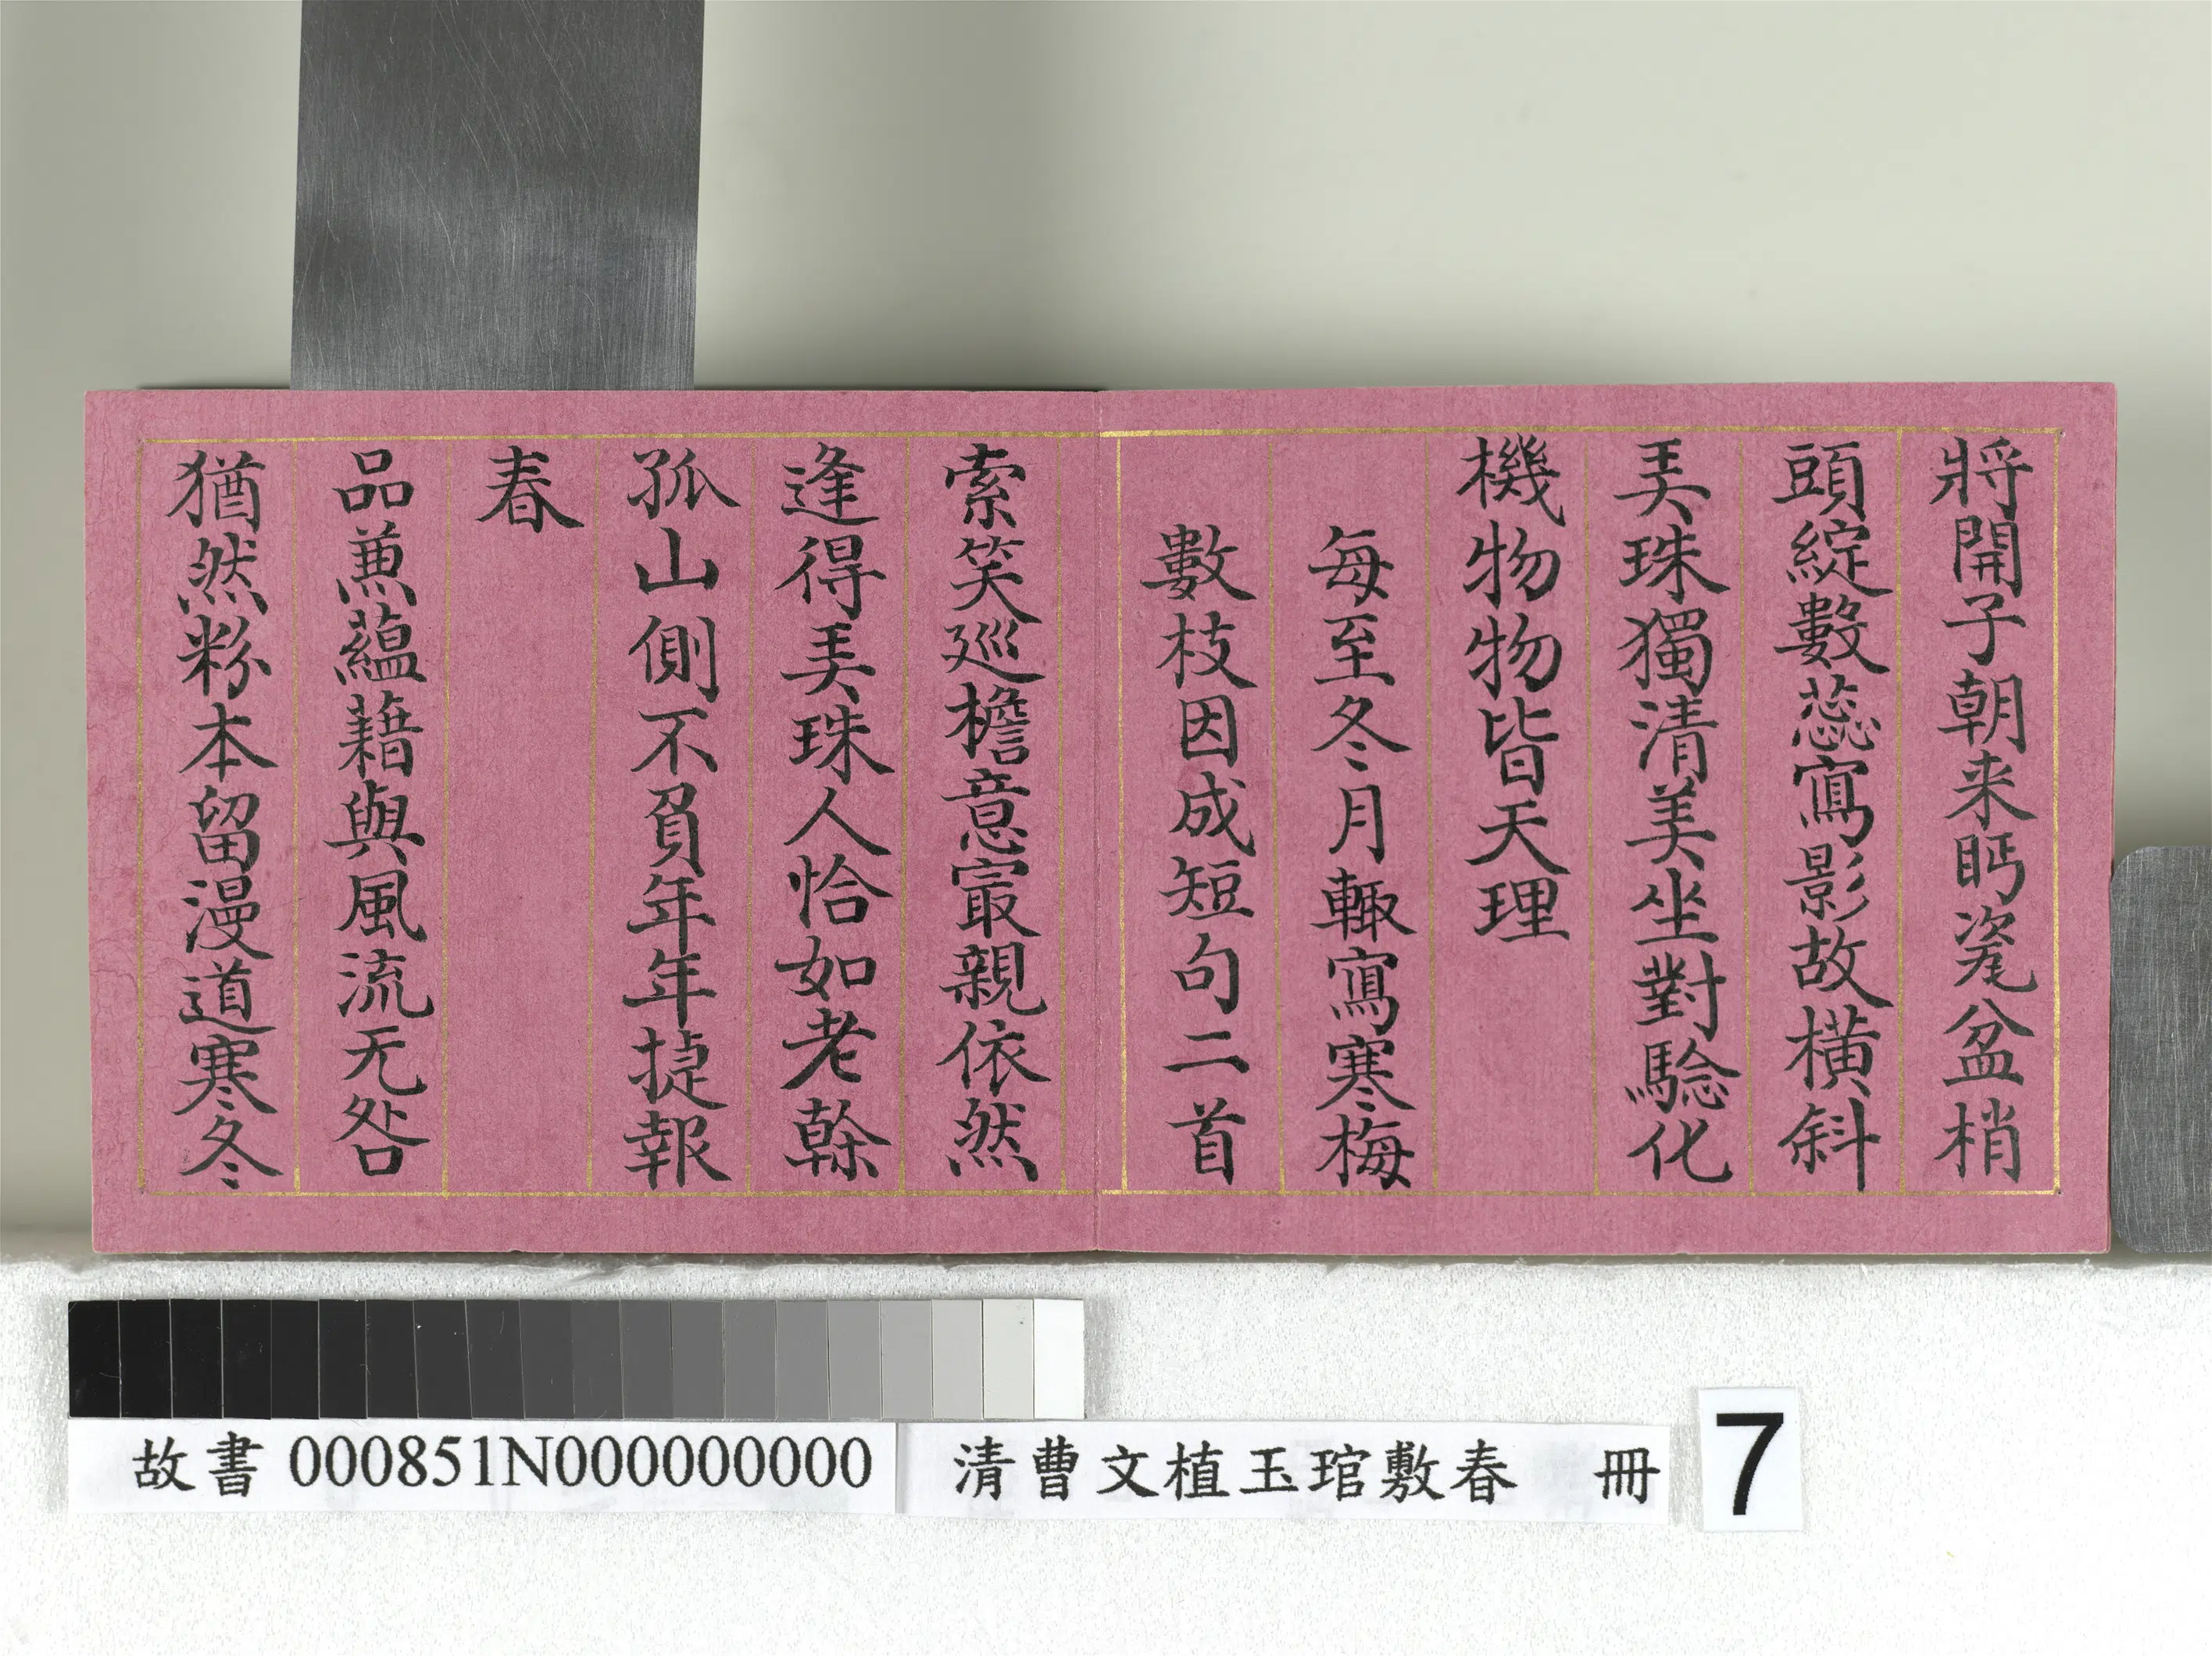 將開子朝来眄瓷盆梢
頭綻數蕊寫影故橫斜
弄珠獨清美坐對驗化
機物物皆天理
每至冬月輙寫寒梅
數枝因成短句二首
索笑巡檐意寂親依然
逢得弄珠人恰如老榦
孤山側不負年年捷報
春
品兼蘊藉與風流无咎
猶然粉本留漫道寒冬
故書 000851N000000000 清曹文植玉琯敷春 冊 7